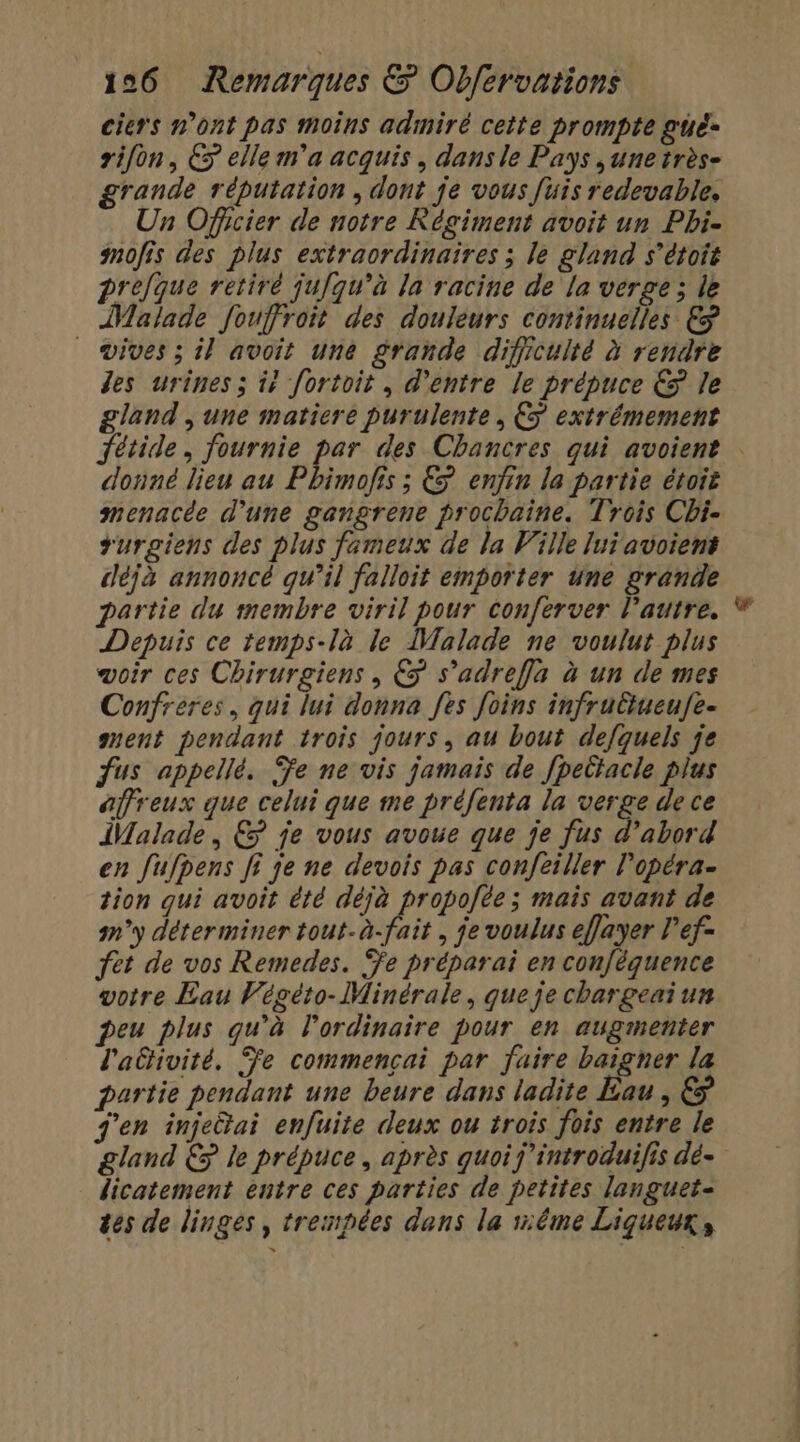 126 Remarques & Obſervations
ciers n'ont pas moins admiré cette prompte gué-
riſon, & elle m'a acquis, dans le Pays, une très-
grande réputation, dont je vous ſuis redevable.
Un Officier de notre Régiment avoit un Phi-
moſis des plus extraordinaires; le gland s'étoit
preſque retiré juſqu'à la racine de la verge; le
Malade ſouffroit des douleurs continuelles &
vives; il avoit une grande difficulté à rendre
les urines; il ſortoit, d'entre le prépuce & le
gland, une matiere purulente, & extrémement
fétide, fournie par des Chancres qui avoient
donné lieu au Phimoſis; & enfin la partie étoit
menacée d'une gangrene prochaine. Trois Chi-
rurgiens des plus fameux de la Ville lui avoient
déjà annoncé qu'il falloit emporter une grande
partie du membre viril pour conſerver l'autre.
Depuis ce temps-là le Malade ne voulut plus
voir ces Chirurgiens, & s'adreſſa à un de mes
Confreres, qui lui donna ſes ſoins infructueuſe-
ment pendant trois jours, au bout deſquels je
fus appellé. Je ne vis jamais de ſpectacle plus
affreux que celui que me préſenta la verge de ce
Malade, & je vous avoue que je fus d'abord
en ſuſpens ſi je ne devois pas conſeiller l'opéra-
tion qui avoit été déjà propoſée; mais avant de
m'y déterminer tout-à-fait, je voulus eſſayer l'ef-
fet de vos Remedes. Je préparai en conſéquence
votre Eau Végéto-Minérale, que je chargeai un
peu plus qu'à l'ordinaire pour en augmenter
l'activité. Je commençai par faire baigner la
partie pendant une heure dans ladite Eau, &
j'en injectai enſuite deux ou trois fois entre le
gland & le prépuce, après quoi j'introduiſis dé-
licatement entre ces parties de petites languet-
tes de linges, trempées dans la même Liqueur,